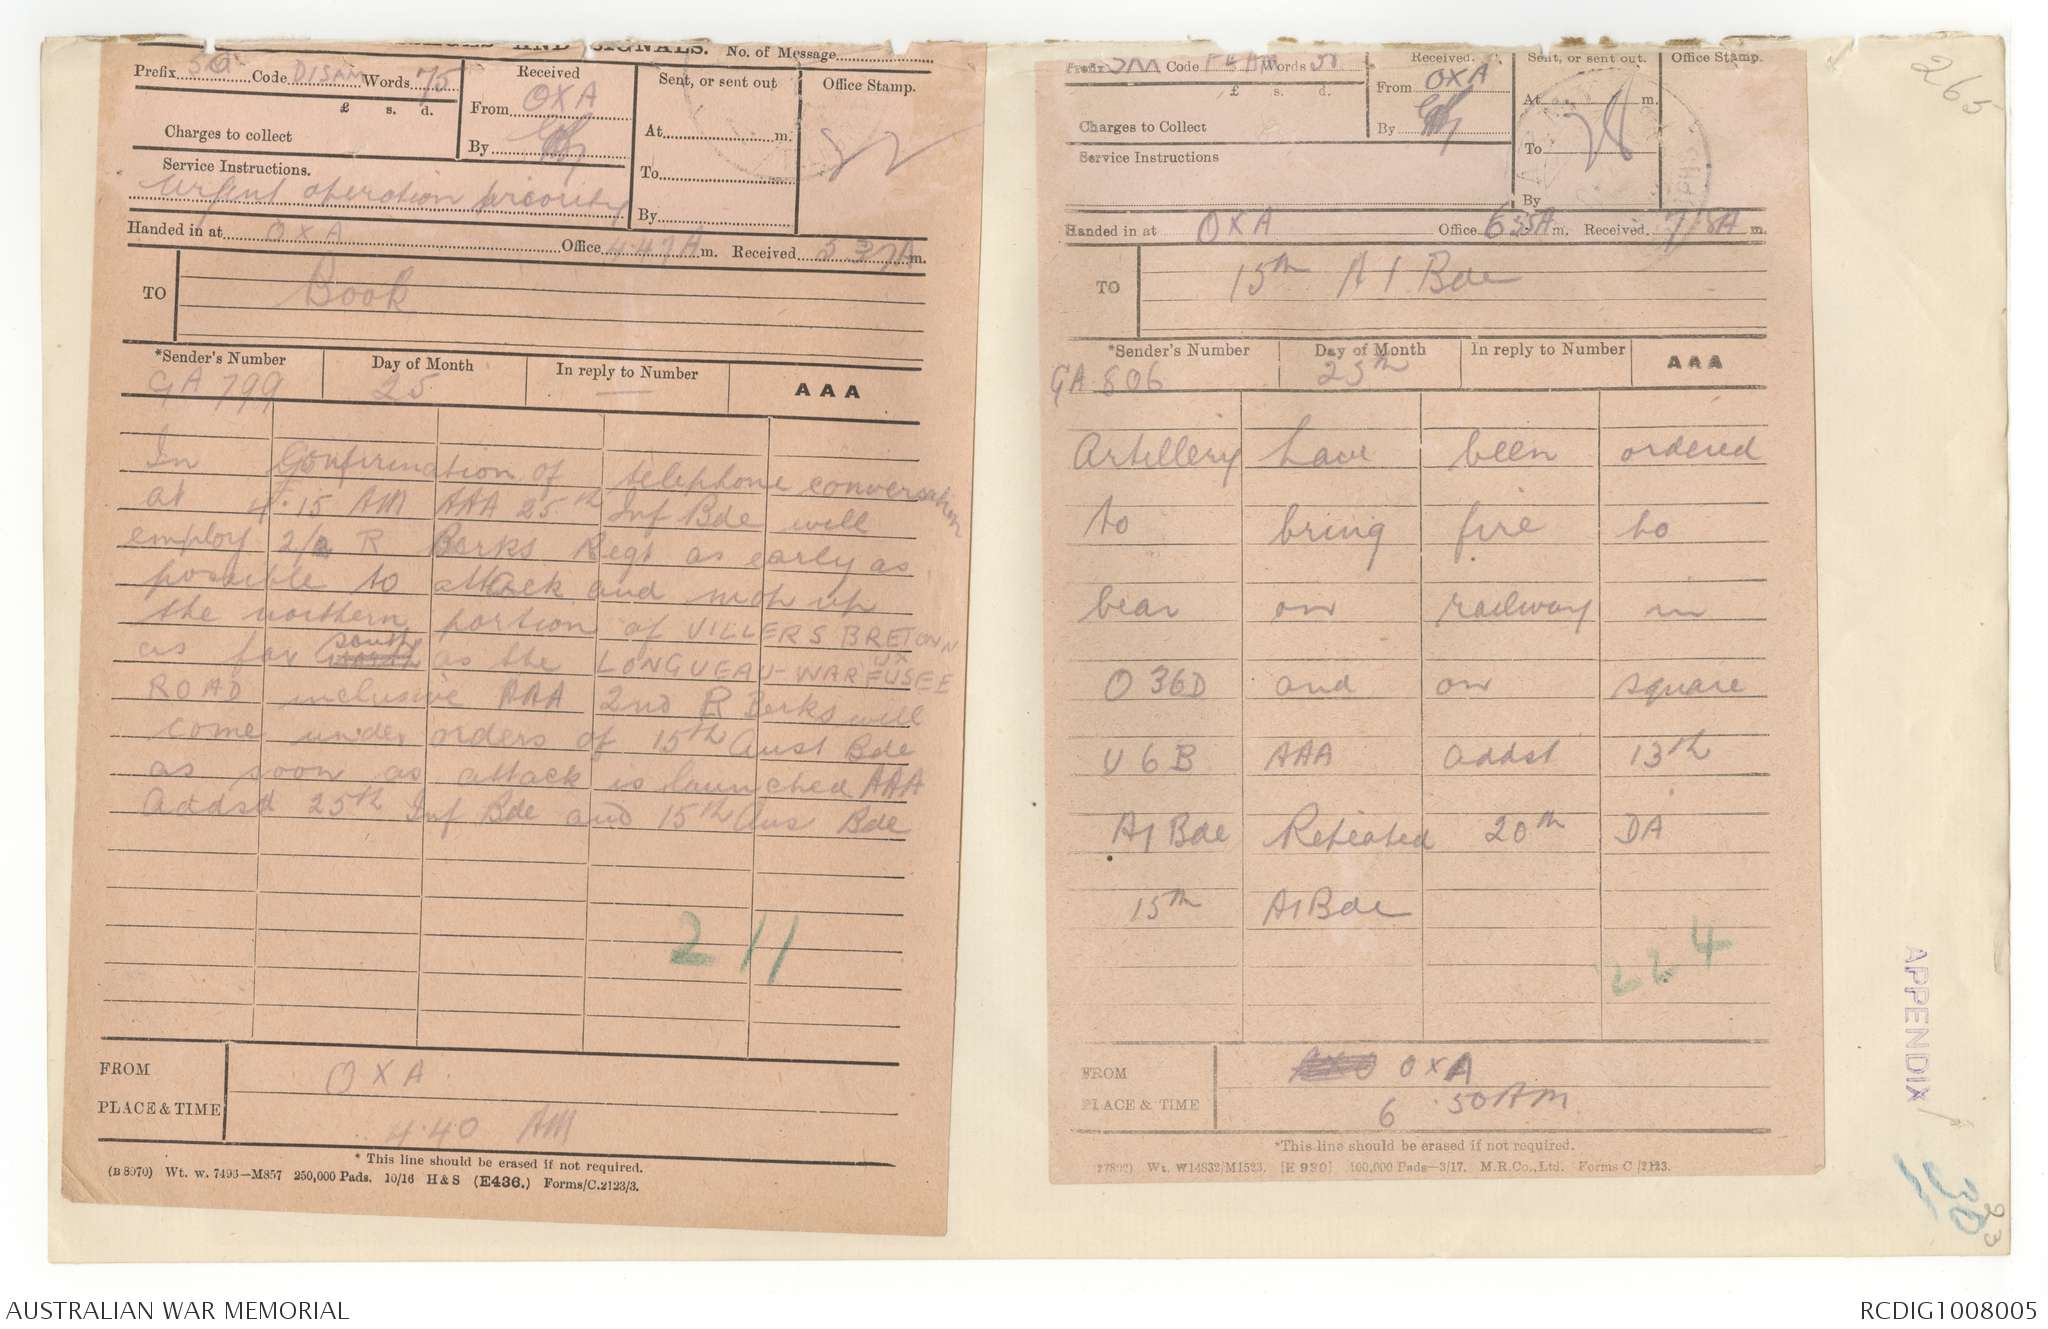 AND SIGNALS. No. of Message
Prefix Code DISAN Words 75
£ s. d.
Charges to collect
Received
From OXA
By
Sent, or sent out
At m.
To
By
Office Stamp.
Service Instructions.
Urgent operation priority
Handed in at OXA Office 4.47 A m. Received 5 37A m.
TO Book
*Sender's Number Day of Month In reply to Number AAA
GA 799 25 —
In Confirmation of telephone conversation
at 4.15 AM AAA 25th Inf Bde will
employ 2/2 R Berks Regt as early as
possible to attack and mop up
the northern portion of VILLERS BRETONN
UX
as far south as the LONGUEAU-WARFUSEE
ROAD inclusive AAA 2nd R Berks will
come under orders of 15th Aust Bde
as soon as attack is launched AAA
Addsd 25th Inf Bde and 15th Aus Bde
211
FROM OXA
PLACE & TIME 4.40 AM
* This line should be erased if not required.
(B 8970) Wt. w. 7493—M857 250,000 Pads. 10/16 H & S (E436.) Forms/C.2123/3.
Prefix Code Words
£ s. d.
Charges to Collect
Received.
From OXA
By
Sent, or sent out.
At m.
To
By
Office Stamp.
Service Instructions
Handed in at OXA Office 6 35A m. Received. 718A m.
TO 15th A I Bde
*Sender's Number Day of Month In reply to Number AAA
GA 806 25th
Artillery have been ordered
to bring fire to
bear on railway in
O 36D and on square
U 6 B AAA addst 13th
A I Bde Repeated 20th DA
15th A I Bde
224
FROM OXA
PLACE & TIME 6.50 AM
*This line should be erased if not required.
Wt. W14832/M1523. [E 930] 100,000 Pads—3/17. M.R.Co., Ltd. Forms C/2123.
265
APPENDIX
30
23
AUSTRALIAN WAR MEMORIAL
RCDIG1008005